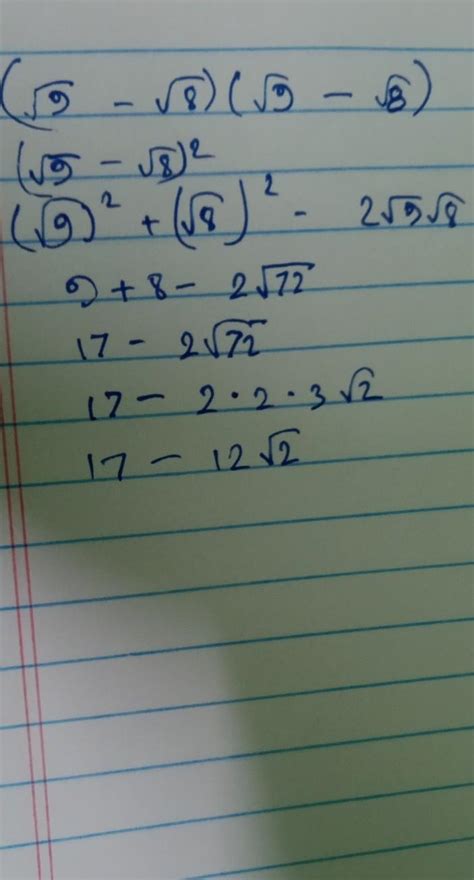 (√9 - √8)(√9 - √8)
(√9 - √8)²
(√9)² + (√8)² - 2√9√8
9 + 8 - 2√72
17 - 2√72
17 - 2·2·3√2
17 - 12√2